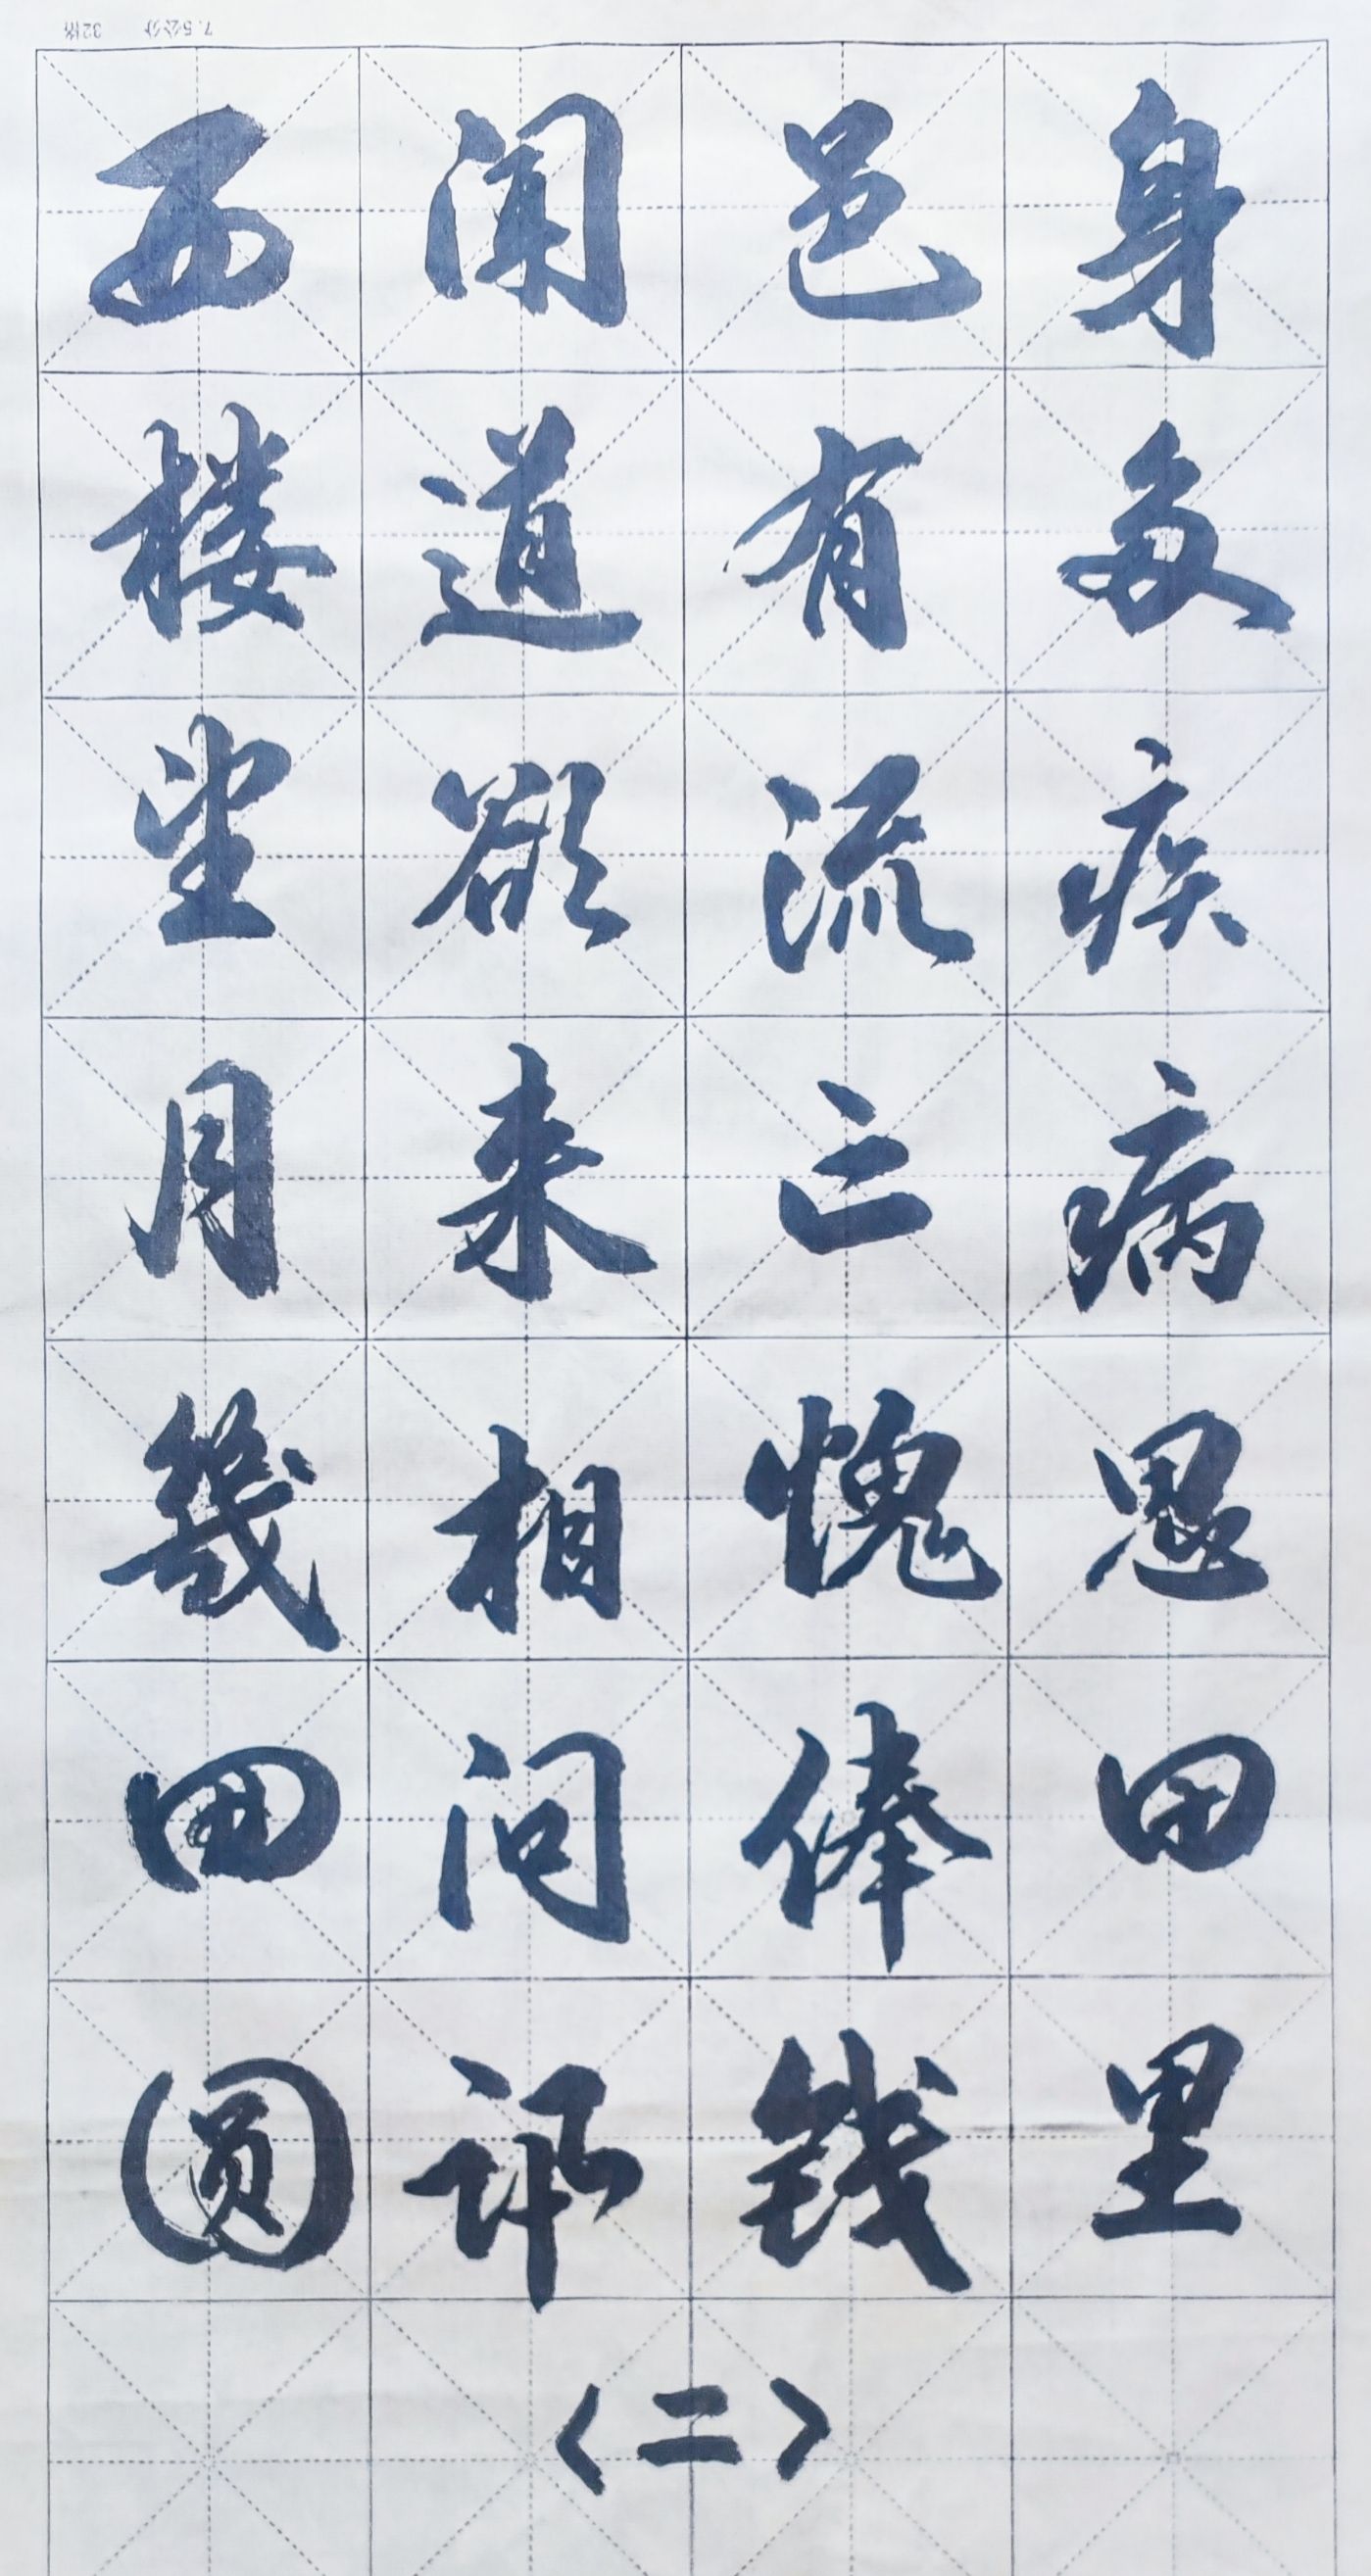 身多疾病思田里
邑有流亡愧俸钱
闻道欲来相问讯
西楼望月几回圆
〈二〉
7.5公分 32格